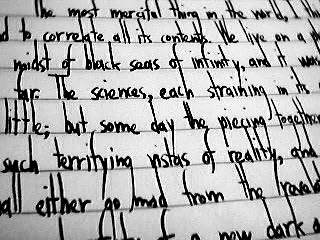 the most merciful thing in the world, I
to correlate all its contents. We live on a
midst of black seas of infinity, and it was
far. The sciences, each straining in its
little; but some day the piecing together
such terrifying vistas of reality, and
all either go mad from the
of a new dark a